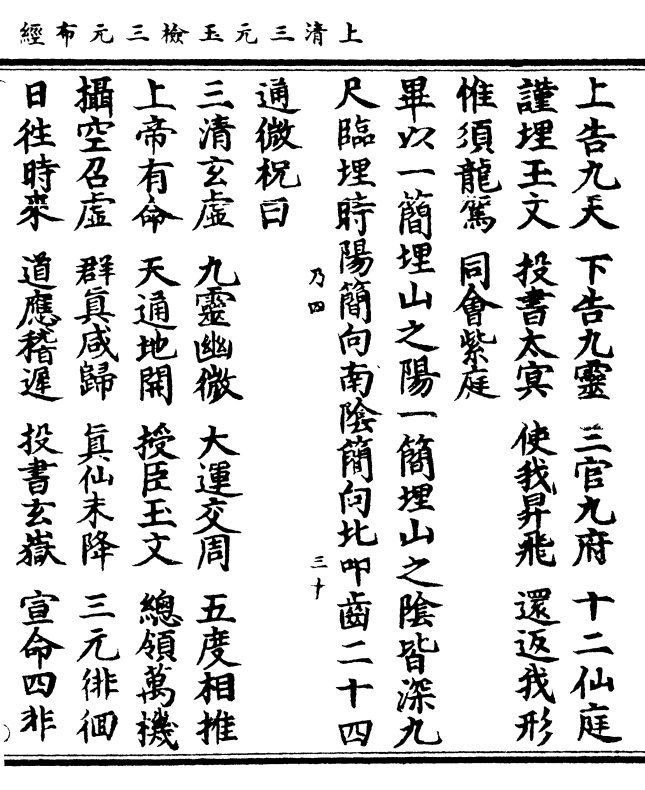 上清三元玉檢三元布經
上告九天　下告九靈　三官九府　十二仙庭
謹埋玉文　投書太冥　使我昇飛　還返我形
惟須龍駕　同會紫庭
畢以一簡埋山之陽一簡埋山之陰皆深九
尺臨埋時陽簡向南陰簡向北叩齒二十四
乃四　三十
通微祝曰
三清玄虛　九靈幽微　大運交周　五度相推
上帝有命　天通地開　授臣玉文　總領萬機
攝空召虛　群真咸歸　真仙未降　三元徘徊
日往時來　道應稽遲　投書玄嶽　宣命四非